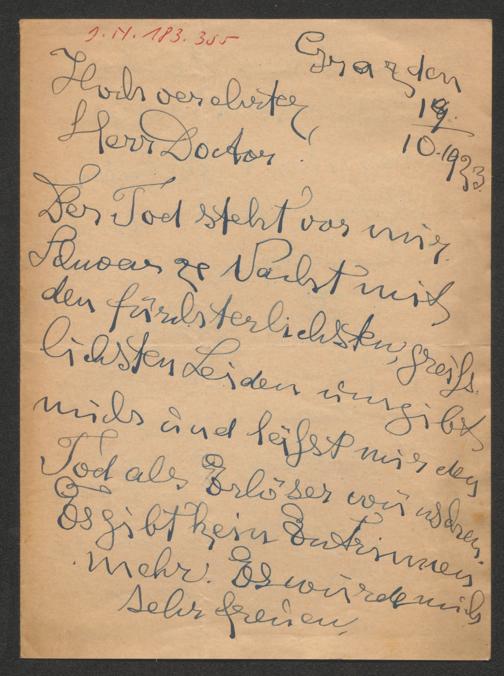 J. N. 183.355
Graz den
19.
10.1933.
Hochverehrter
Herr Doctor!
Der Tod steht vor mir.
Schwarze Nacht mit
den fürchterlichsten, gräss-
lichsten Leiden umgibt
mich und lässt mir den
Tod als Erlöser wünschen.
Es gibt kein Entrinnen
mehr. Es würde mich
sehr freuen,